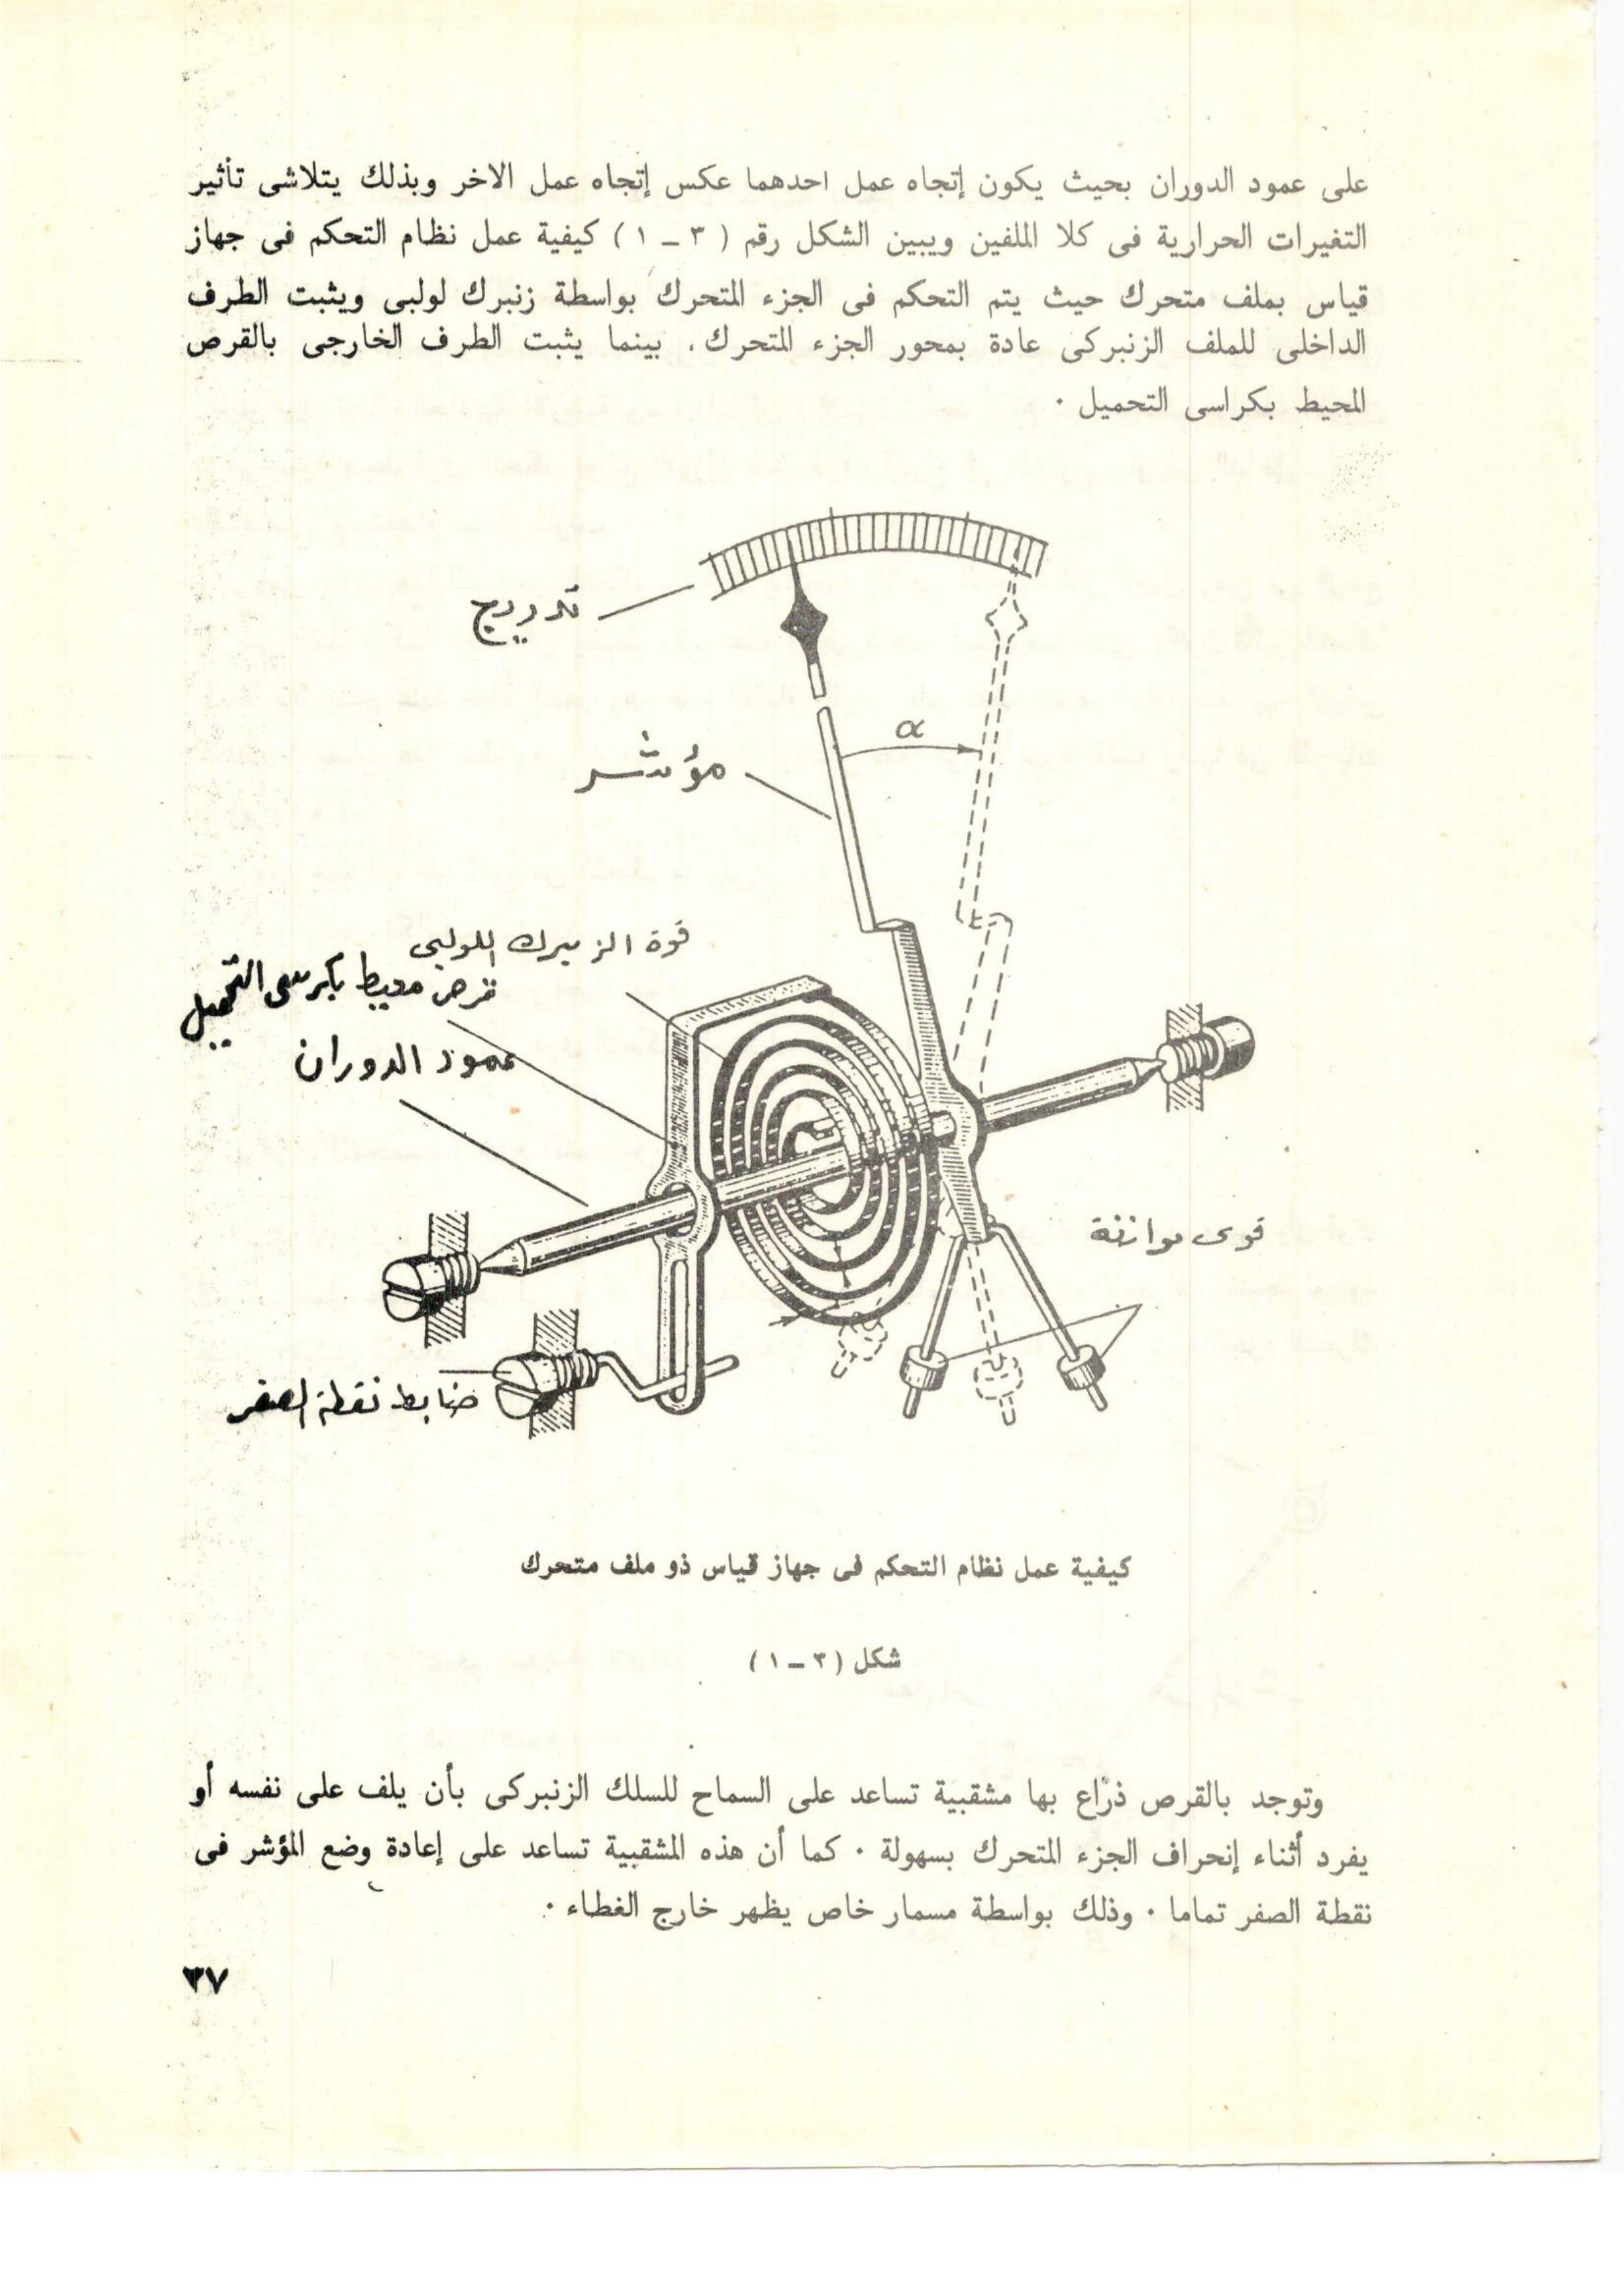 على عمود الدوران بحيث يكون إتجاه عمل احدهما عكس إتجاه عمل الاخر وبذلك يتلاشى تأثير
التغيرات الحرارية فى كلا الملفين ويبين الشكل رقم ( ٣ – ١ ) كيفية عمل نظام التحكم فى جهاز
قياس بملف متحرك حيث يتم التحكم فى الجزء المتحرك بواسطة زنبرك لولبى ويثبت الطرف
الداخلى للملف الزنبركى عادة بمحور الجزء المتحرك، بينما يثبت الطرف الخارجى بالقرص
المحيط بكراسى التحميل ٠
تدريج
α
مؤشر
قوة الزمبرك اللولبى
قرص محيط بكرسى التحميل
عمود الدوران
قوى موازنة
ضابط نقطة الصفر
كيفية عمل نظام التحكم فى جهاز قياس ذو ملف متحرك
شكل ( ٣ – ١ )
وتوجد بالقرص ذراع بها مشقبية تساعد على السماح للسلك الزنبركى بأن يلف على نفسه أو
يفرد أثناء إنحراف الجزء المتحرك بسهولة ٠ كما أن هذه المشقبية تساعد على إعادة وضع المؤشر فى
نقطة الصفر تماما ٠ وذلك بواسطة مسمار خاص يظهر خارج الغطاء ٠
٣٧